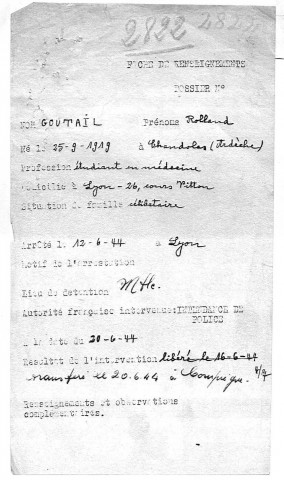 2822 2822
FICHE DE RENSEIGNEMENTS
DOSSIER N°
NOM GOUTAIL Prénoms Rolland
Né le 25-9-1919 à Chandolas (Ardèche)
Profession étudiant en médecine
Domicilié à Lyon - 26, cours Vitton
Situation de famille célibataire
Arrêté le 12-6-44 à Lyon
Motif de l'arrestation
Lieu de détention Mtc.
Autorité française intervenue: INTENDANCE DE
POLICE
A la date du 20-6-44
Résultat de l'intervention libéré le 16-6-44
transféré le 20.6.44 à Compiègne.
Renseignements et observations
complémentaires.